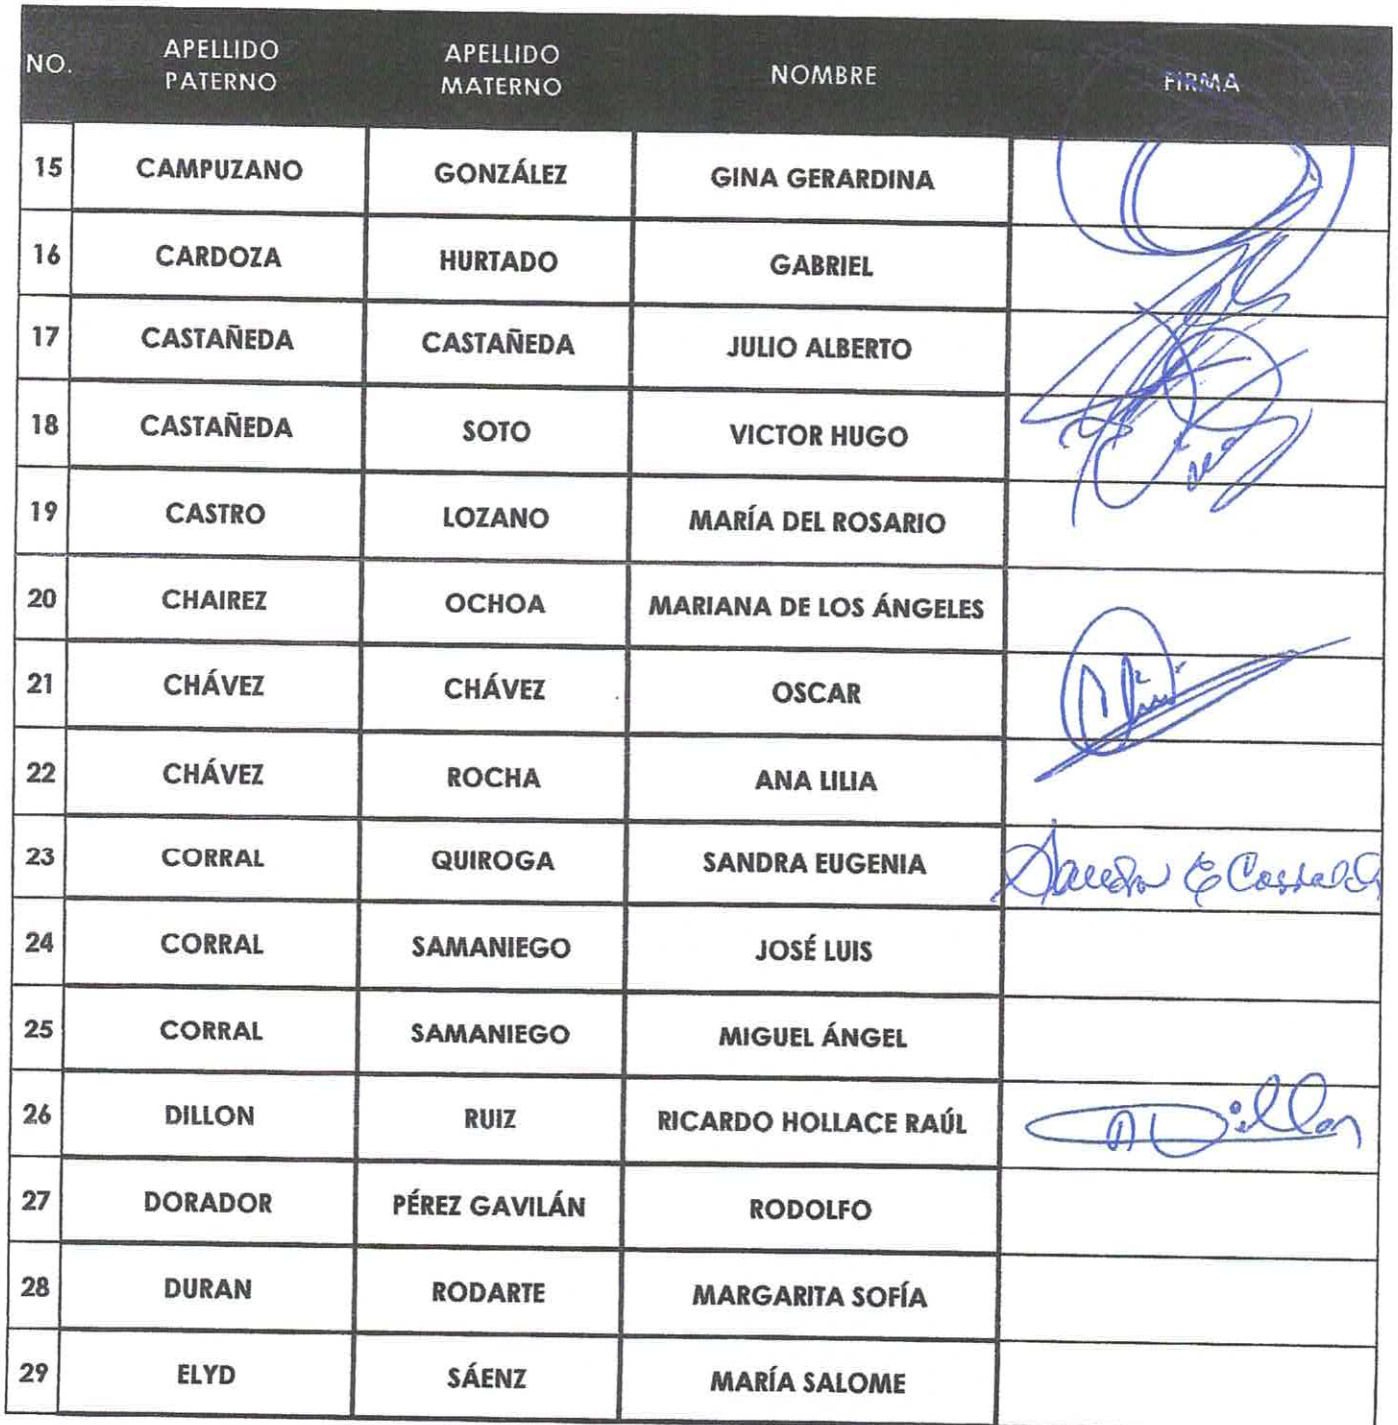 NO. APELLIDO PATERNO APELLIDO MATERNO NOMBRE FIRMA
15 CAMPUZANO GONZÁLEZ GINA GERARDINA
16 CARDOZA HURTADO GABRIEL
17 CASTAÑEDA CASTAÑEDA JULIO ALBERTO
18 CASTAÑEDA SOTO VICTOR HUGO
19 CASTRO LOZANO MARÍA DEL ROSARIO
20 CHAIREZ OCHOA MARIANA DE LOS ÁNGELES
21 CHÁVEZ CHÁVEZ OSCAR
22 CHÁVEZ ROCHA ANA LILIA
23 CORRAL QUIROGA SANDRA EUGENIA Sandra E Corral
24 CORRAL SAMANIEGO JOSÉ LUIS
25 CORRAL SAMANIEGO MIGUEL ÁNGEL
26 DILLON RUIZ RICARDO HOLLACE RAÚL Dillon
27 DORADOR PÉREZ GAVILÁN RODOLFO
28 DURAN RODARTE MARGARITA SOFÍA
29 ELYD SÁENZ MARÍA SALOME